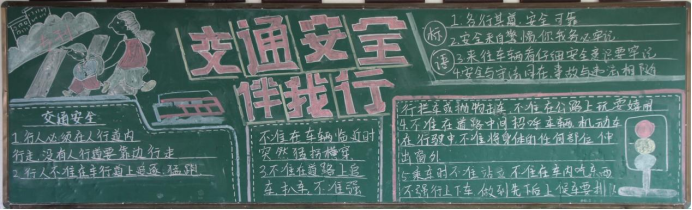 交通安全
伴我行
标
语
1.各行其道,安全可靠
2.安全来自警惕
3.来往车辆看仔细安全意识要牢记
4安全与守法同在事故与违法相随
交通安全
1.行人必须在人行道内
行走,没有人行道要靠边行走
2.行人不准在车行道上追逐、猛跑
不准在车辆临近时
突然猛拐横穿
3.不准在道路上
车、扒车、不准强
行拦车或抛物击车 不准在公路上玩耍嬉闹
4.不准在道路中间招呼车辆 机动车
在行驶中不准将身体的任何部位伸
出窗外
5乘车时不准站立 不准在车内吃东西
不强行上下车 做到先下后上 候车要排